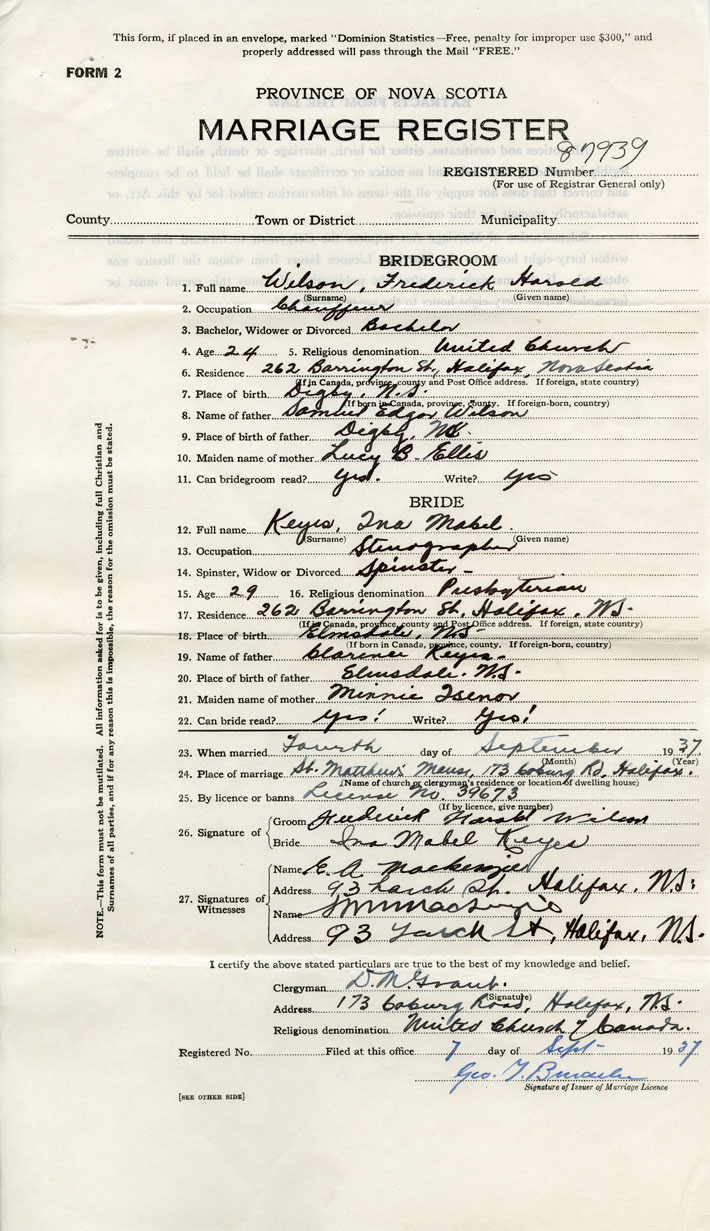 This form, if placed in an envelope, marked "Dominion Statistics—Free, penalty for improper use $300," and
properly addressed will pass through the Mail "FREE."
FORM 2
PROVINCE OF NOVA SCOTIA
MARRIAGE REGISTER
87939
REGISTERED Number
(For use of Registrar General only)
County Town or District Municipality
BRIDEGROOM
1. Full name Wilson, Frederick Harold
(Surname) (Given name)
2. Occupation Chauffeur
3. Bachelor, Widower or Divorced Bachelor
4. Age 24 5. Religious denomination United Church
6. Residence 262 Barrington St., Halifax, Nova Scotia
(If in Canada, province, county and Post Office address. If foreign, state country)
7. Place of birth Digby, N.S.
(If born in Canada, province, county. If foreign-born, country)
8. Name of father Samuel Edgar Wilson
9. Place of birth of father Digby, NS.
10. Maiden name of mother Lucy B. Ellis
11. Can bridegroom read? Yes. Write? Yes
BRIDE
12. Full name Keyes, Ina Mabel
(Surname) (Given name)
13. Occupation Stenographer
14. Spinster, Widow or Divorced Spinster -
15. Age 29 16. Religious denomination Presbyterian
17. Residence 262 Barrington St, Halifax, NS-
(If in Canada, province, county and Post Office address. If foreign, state country)
18. Place of birth Elmsdale, NS-
(If born in Canada, province, county. If foreign-born, country)
19. Name of father Clarence Keyes-
20. Place of birth of father Elmsdale. N.S-
21. Maiden name of mother Minnie Isenor
22. Can bride read? Yes! Write? Yes!
23. When married Fourth day of September 1937
(Month) (Year)
24. Place of marriage St. Matthew's Manse, 173 Coburg Rd, Halifax.
(Name of church or clergyman's residence or location of dwelling house)
25. By licence or banns License No. 39673
(If by licence, give number)
26. Signature of Groom Frederick Harold Wilson
Bride Ina Mabel Keyes
27. Signatures of Witnesses
Name E. A. Mackenzie
Address 93 Larch St. Halifax, N.S:
Name
Address 93 Larch St, Halifax, N.S-
NOTE.—This form must not be mutilated. All information asked for is to be given, including full Christian and
Surnames of all parties, and if for any reason this is impossible, the reason for the omission must be stated.
I certify the above stated particulars are true to the best of my knowledge and belief.
Clergyman D. M. Grant.
(Signature)
Address 173 Coburg Road, Halifax, NS-
Religious denomination United Church of Canada.
Registered No. Filed at this office 7 day of Sept- 1937
Geo. T.
Signature of Issuer of Marriage Licence
[SEE OTHER SIDE]